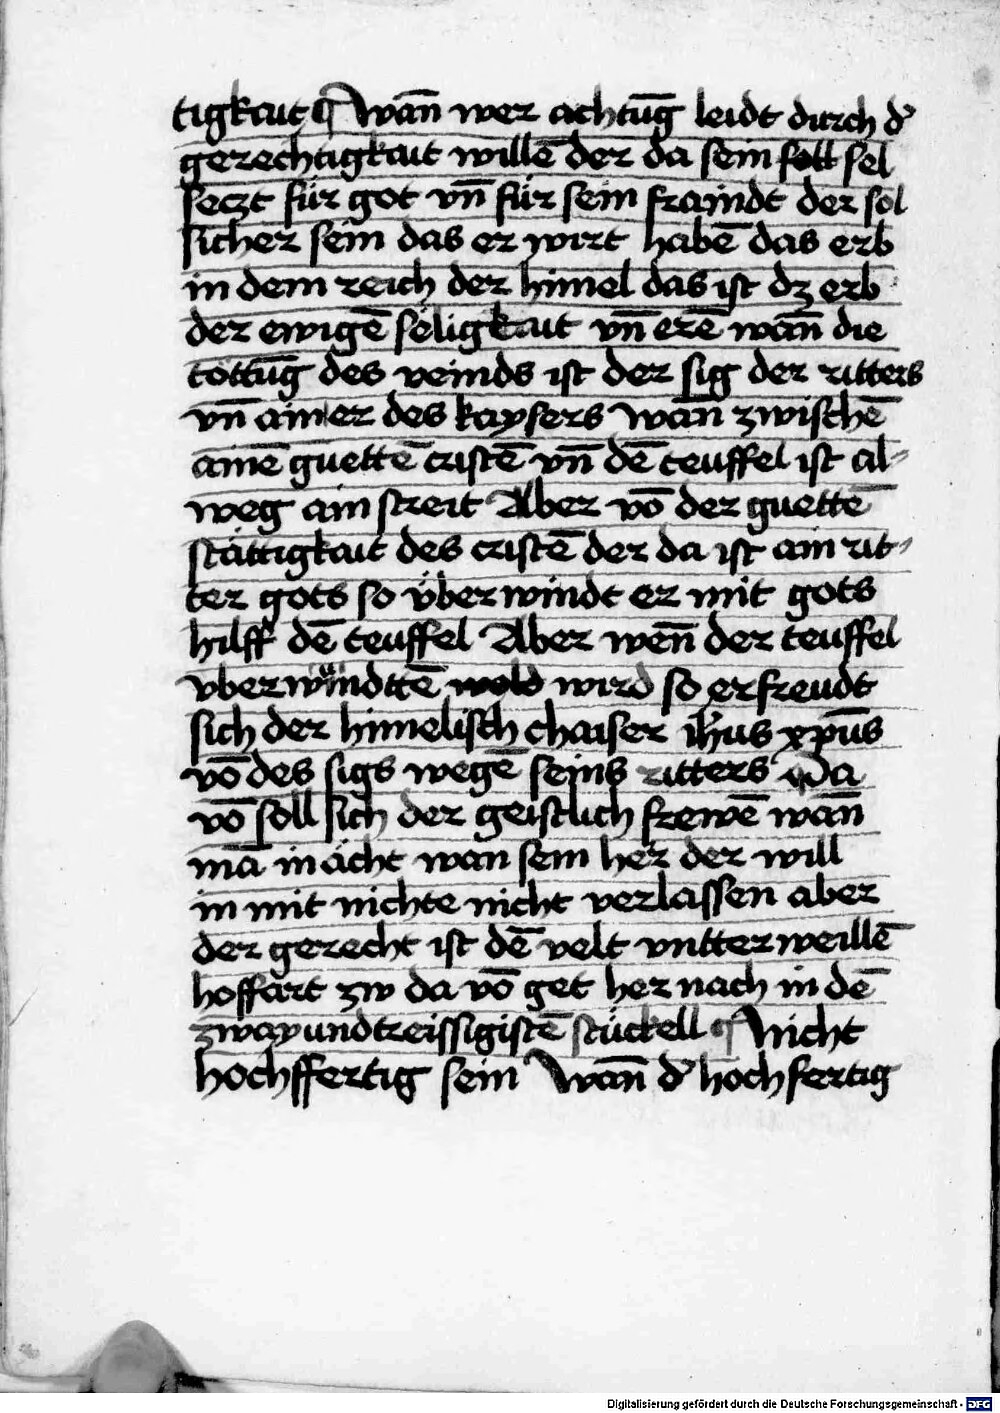 tigkait ¶ Wan̄ wer achtūg leidt durch d'
gerechtigkait willē der da sein sel
seczt für got vn̄ für sein fraindt der sol
sicher sein das er wirt habē das erb
in dem reich der himel das ist dz erb
der ewigē säligkait vn̄ erē wan̄ die
töttūg des veinds ist der sig der ritters
vn̄ ainer des kaysers wan zwischē
ainē guettē cristē vn̄ dē teuffel ist al-
weg ain streit Aber vō der guettē
stättigkait des cristē der da ist ain rit-
ter gots so über windt er mit gots
hilff dē teuffel Aber wen̄ der teuffel
vber wundtē wird so erfreudt
sich der himelisch chaiser ih̄us xp̄us
vō des sigs wegē seins ritters Da
vō soll sich der geistlich frewē wan̄
mā in ächt wan sein her der will
in mit nichte nicht verlassen aber
der gerecht ist dē velt vntter weillē
hoffart zw da vō get her nach in dē
zwayundtreissigistē stückell ¶ Nicht
hochffertig sein Wan̄ d' hochfertig
Digitalisierung gefördert durch die Deutsche Forschungsgemeinschaft - DFG